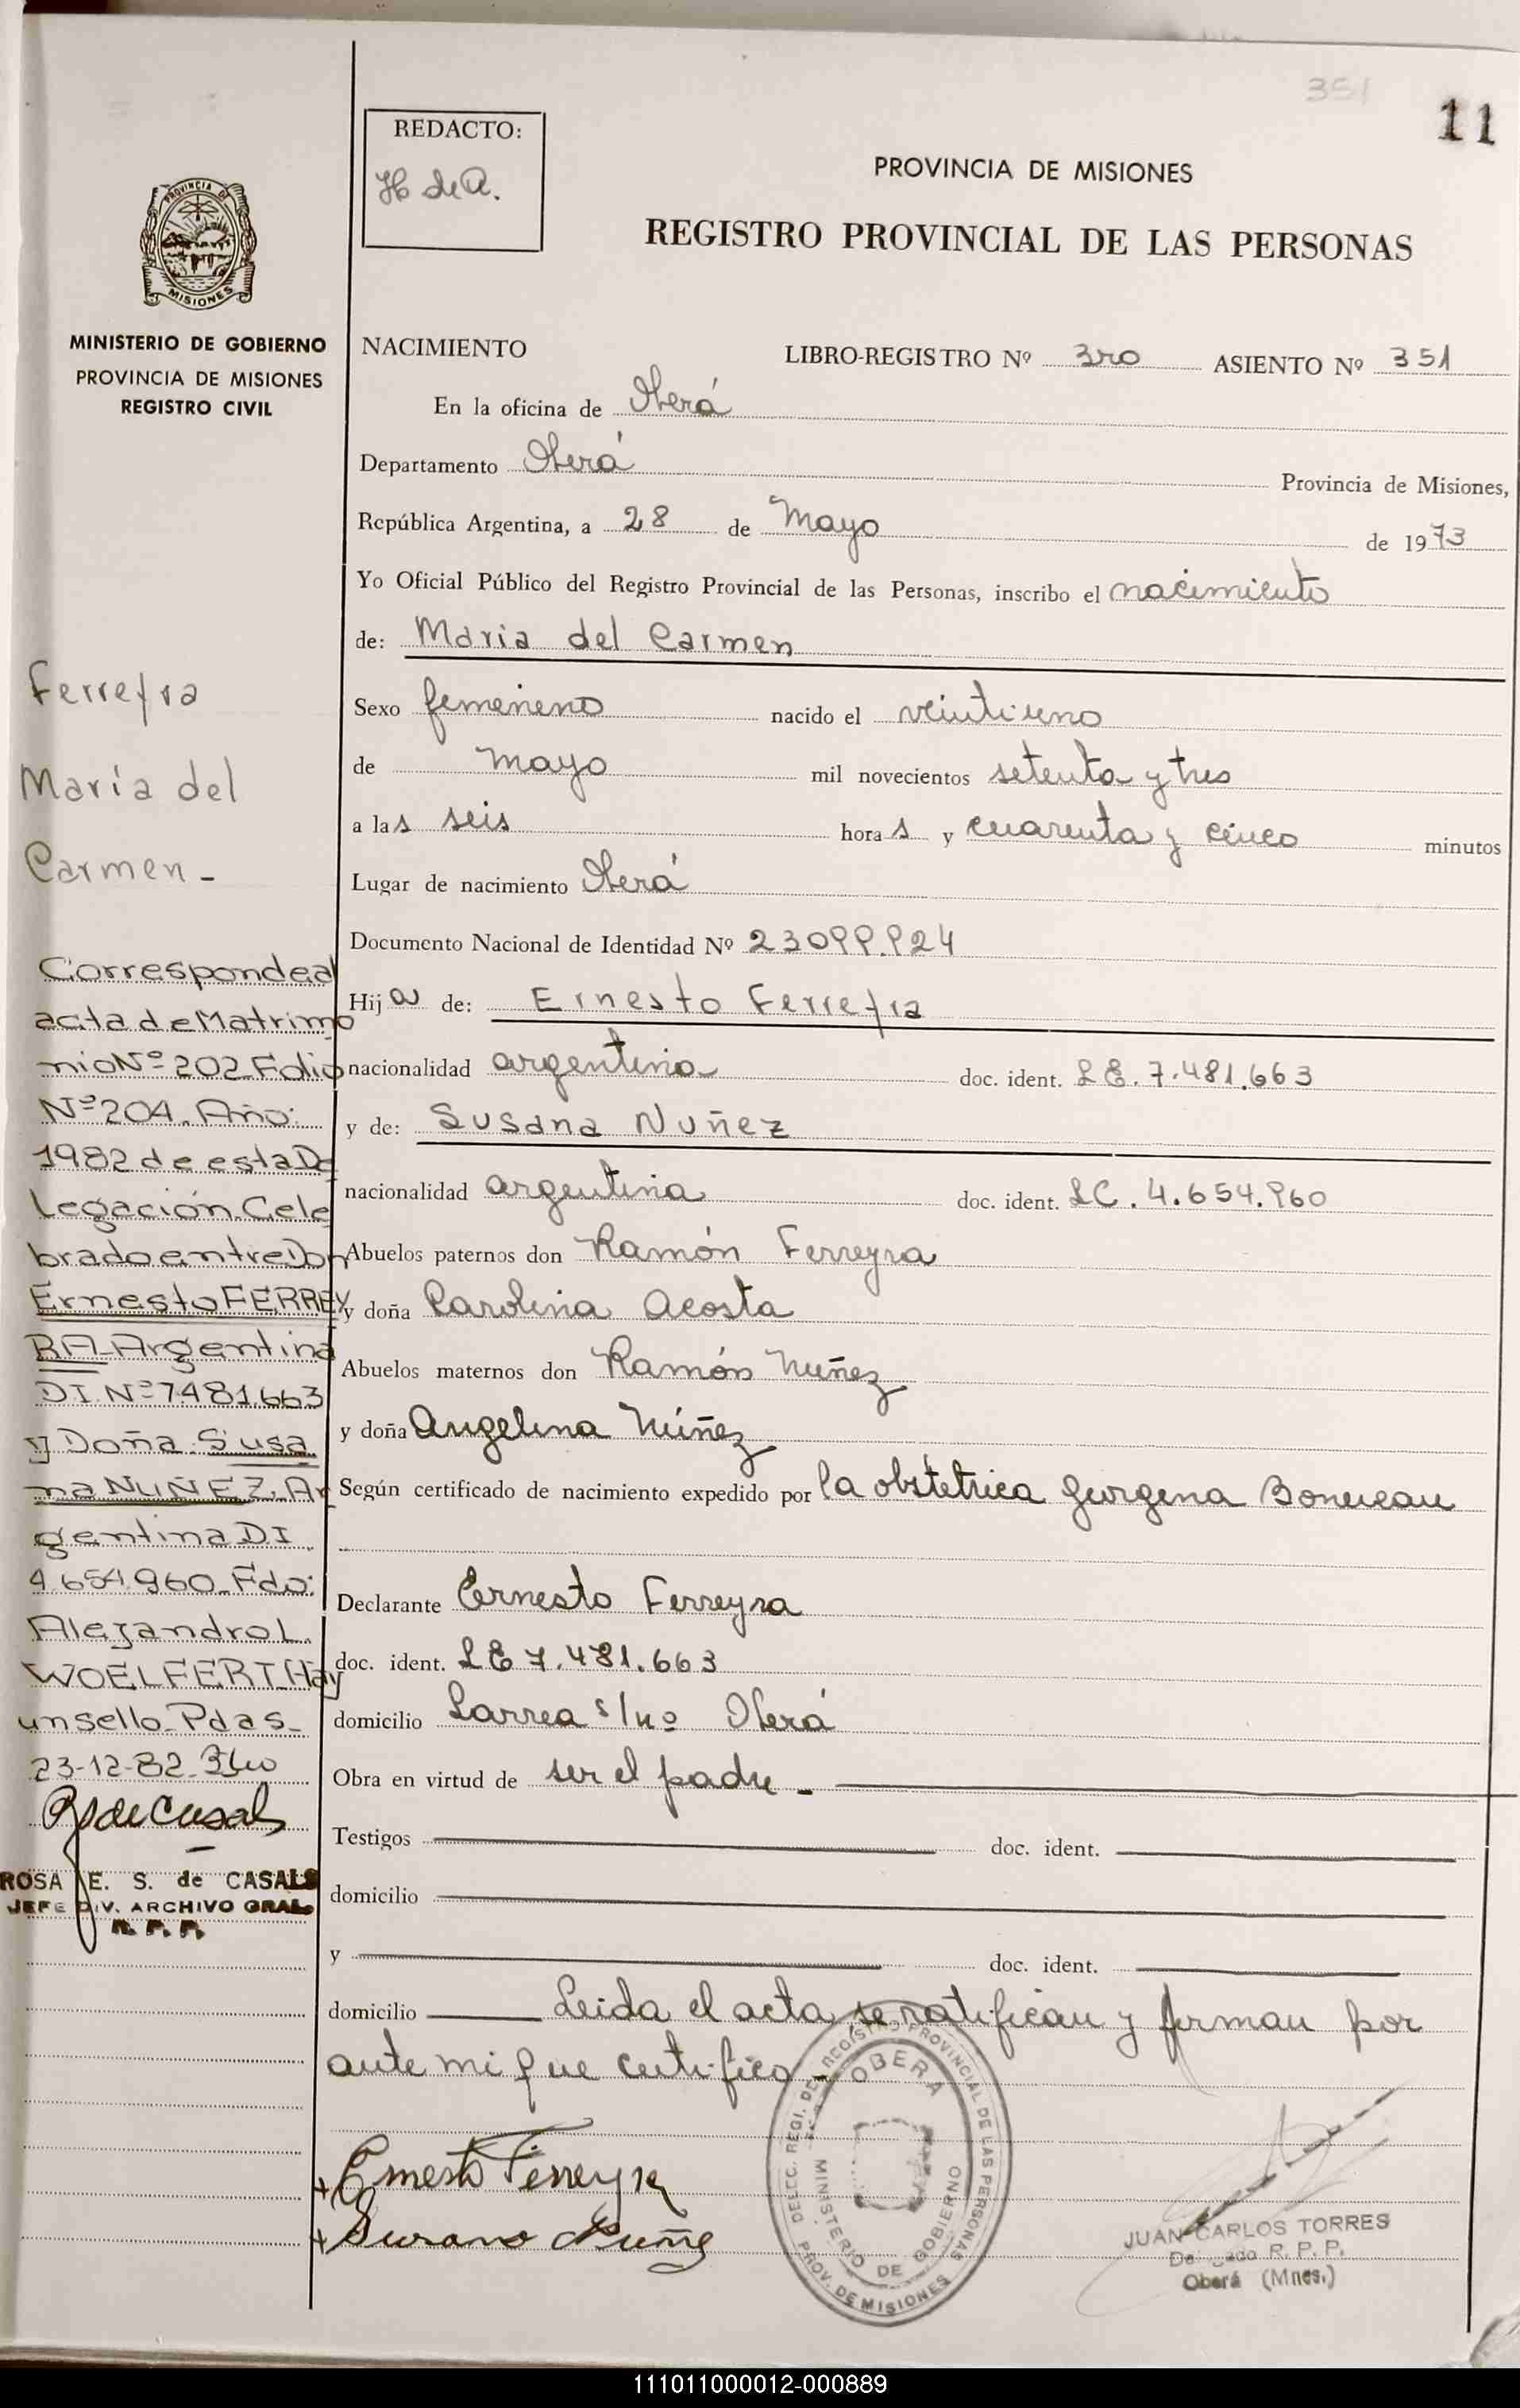 351
11
REDACTO:
H de A.
PROVINCIA DE MISIONES
REGISTRO PROVINCIAL DE LAS PERSONAS
PROVINCIA DE
MISIONES
MINISTERIO DE GOBIERNO
PROVINCIA DE MISIONES
REGISTRO CIVIL
NACIMIENTO LIBRO-REGISTRO Nº 3ro ASIENTO Nº 351
En la oficina de Oberá
Departamento Oberá Provincia de Misiones,
República Argentina, a 28 de Mayo de 1973
Yo Oficial Público del Registro Provincial de las Personas, inscribo el nacimiento
de: Maria del Carmen
Sexo femenino nacido el veintiuno
de mayo mil novecientos setenta y tres
a las seis horas y cuarenta y cinco minutos
Lugar de nacimiento Oberá
Documento Nacional de Identidad Nº 23099.924
Hija de: Ernesto Ferreyra
nacionalidad argentina doc. ident. LE. 7.481.663
y de: Susana Nuñez
nacionalidad argentina doc. ident. LC. 4.654.960
Abuelos paternos don Ramón Ferreyra
y doña Carolina Acosta
Abuelos maternos don Ramón Nuñez
y doña Angelina Núñez
Según certificado de nacimiento expedido por la obstetrica Georgena
Declarante Ernesto Ferreyra
doc. ident. LE 7.481.663
domicilio Larrea s/nº Oberá
Obra en virtud de ser el padre -
Testigos doc. ident.
domicilio
y doc. ident.
domicilio Leida el acta, se ratifican y firman por
ante mi que certifico -
Ernesto Ferreyra
Susana Nuñez
DELEG. REGI. DEL REGISTRO PROVINCIAL DE LAS PERSONAS
OBERA
MINISTERIO DE GOBIERNO
PROV. DE MISIONES
JUAN CARLOS TORRES
Delegado R. P. P.
Oberá (Mnes.)
Ferreyra
María del
Carmen -
Corresponde al
acta de Matrimo
nio Nº 202 Folio
Nº 204. Año:
1982 de esta De
legación. Cele
brado entre Don
Ernesto FERREY
RA Argentina
DI. Nº 7.481.663
y Doña Susa
na NUÑEZ. Ar
gentina D.I
4.654.960. Fdo:
Alejandro L.
WOELFERT. Hay
un sello. Pdas -
23-12-82.
R S de Casals
ROSA E. S. de CASALS
JEFE DIV. ARCHIVO GRAL.
R. P. P.
111011000012-000889